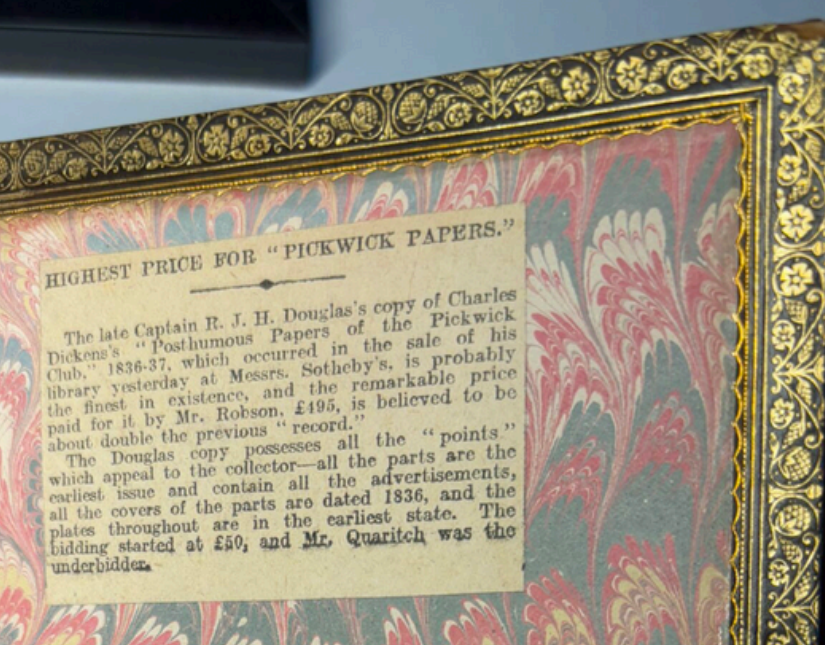 HIGHEST PRICE FOR "PICKWICK PAPERS."
The late Captain R. J. H. Douglas's copy of Charles
Dickens's "Posthumous Papers of the Pickwick
Club," 1836-37, which occurred in the sale of his
library yesterday at Messrs. Sotheby's, is probably
the finest in existence, and the remarkable price
paid for it by Mr. Robson, £495, is believed to be
about double the previous "record."
The Douglas copy possesses all the "points"
which appeal to the collector—all the parts are the
earliest issue and contain all the advertisements,
all the covers of the parts are dated 1836, and the
plates throughout are in the earliest state. The
bidding started at £50, and Mr. Quaritch was the
underbidder.